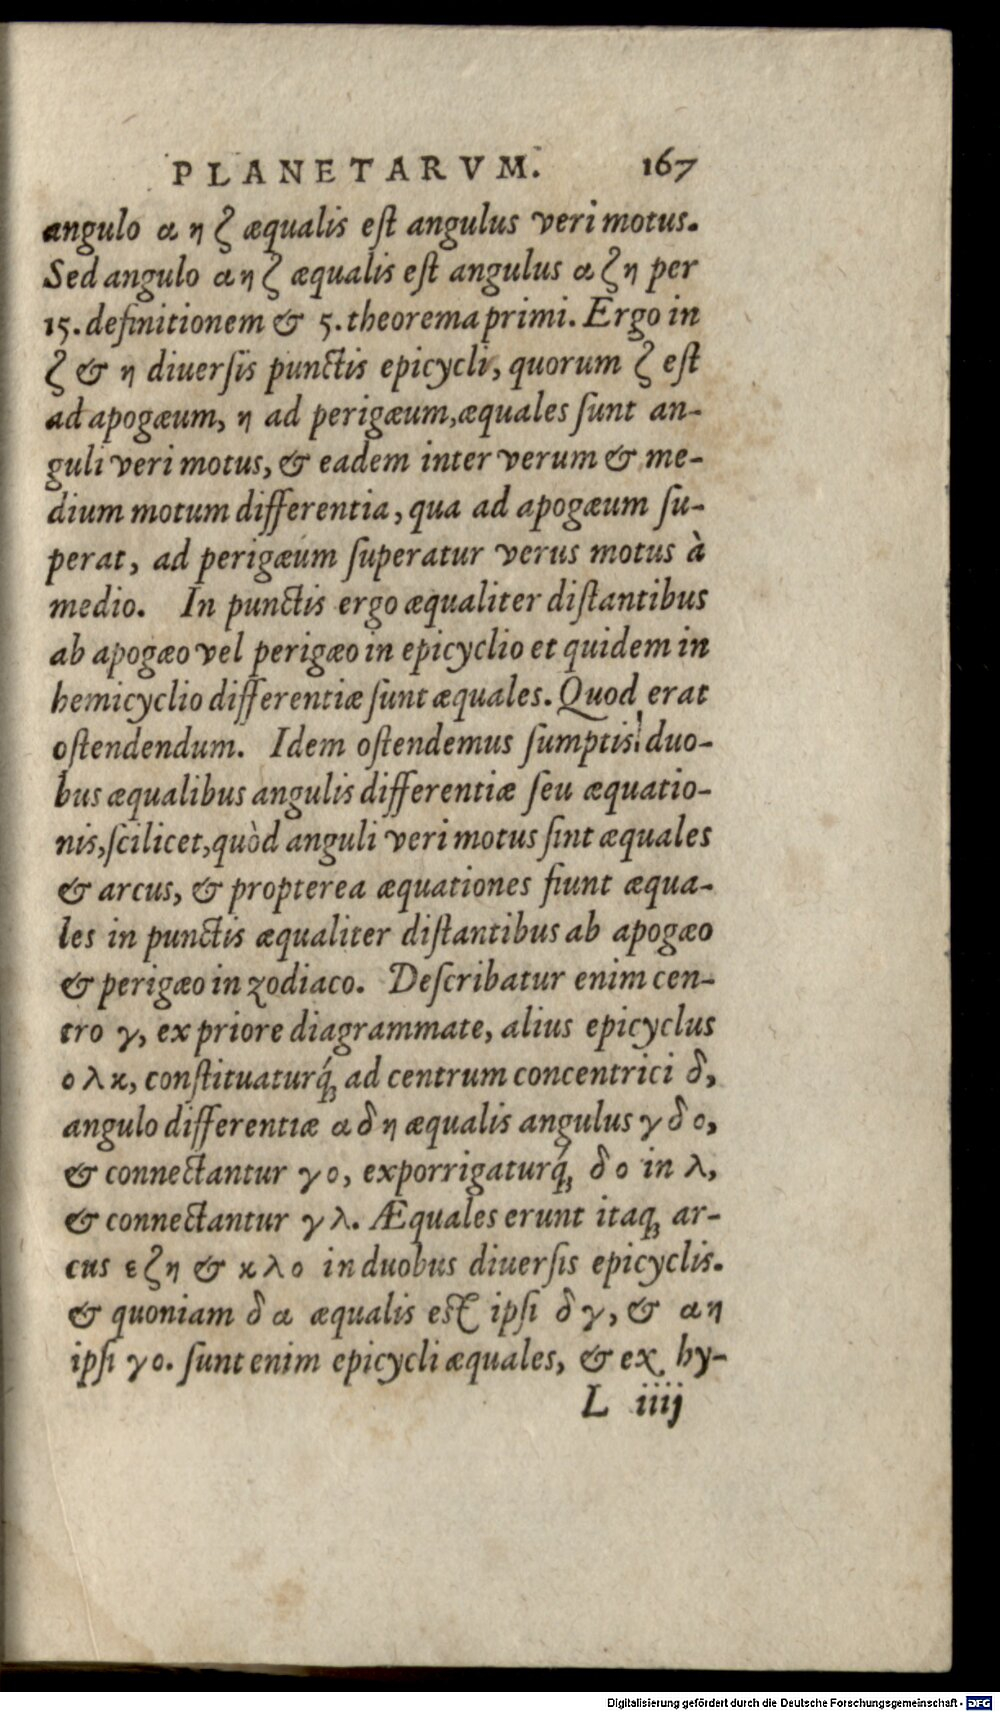 PLANETARVM. 167
angulo α η ζ æqualis eſt angulus veri motus.
Sed angulo α η ζ æqualis eſt angulus α ζ η per
15. definitionem & 5. theorema primi. Ergo in
ζ & η diuerſis punctis epicycli, quorum ζ eſt
ad apogæum, η ad perigæum, æquales ſunt an-
guli veri motus, & eadem inter verum & me-
dium motum differentia, qua ad apogæum ſu-
perat, ad perigæum ſuperatur verus motus à
medio. In punctis ergo æqualiter diſtantibus
ab apogæo vel perigæo in epicyclio et quidem in
hemicyclio differentiæ ſunt æquales. Quod erat
oſtendendum. Idem oſtendemus ſumptis duo-
bus æqualibus angulis differentiæ ſeu æquatio-
nis, ſcilicet, quòd anguli veri motus ſint æquales
& arcus, & propterea æquationes fiunt æqua-
les in punctis æqualiter diſtantibus ab apogæo
& perigæo in zodiaco. Deſcribatur enim cen-
tro γ, ex priore diagrammate, alius epicyclus
ο λ κ, conſtituaturq́ꝫ ad centrum concentrici δ,
angulo differentiæ α δ η æqualis angulus γ δ ο,
& connectantur γ ο, exporrigaturq́ꝫ δ ο in λ,
& connectantur γ λ. Æquales erunt itaqꝫ ar-
cus ε ζ η & κ λ ο in duobus diuerſis epicyclis.
& quoniam δ α æqualis eſt ipſi δ γ, & α η
ipſi γ ο. ſunt enim epicycli æquales, & ex hy-
L iiij
Digitalisierung gefördert durch die Deutsche Forschungsgemeinschaft - DFG